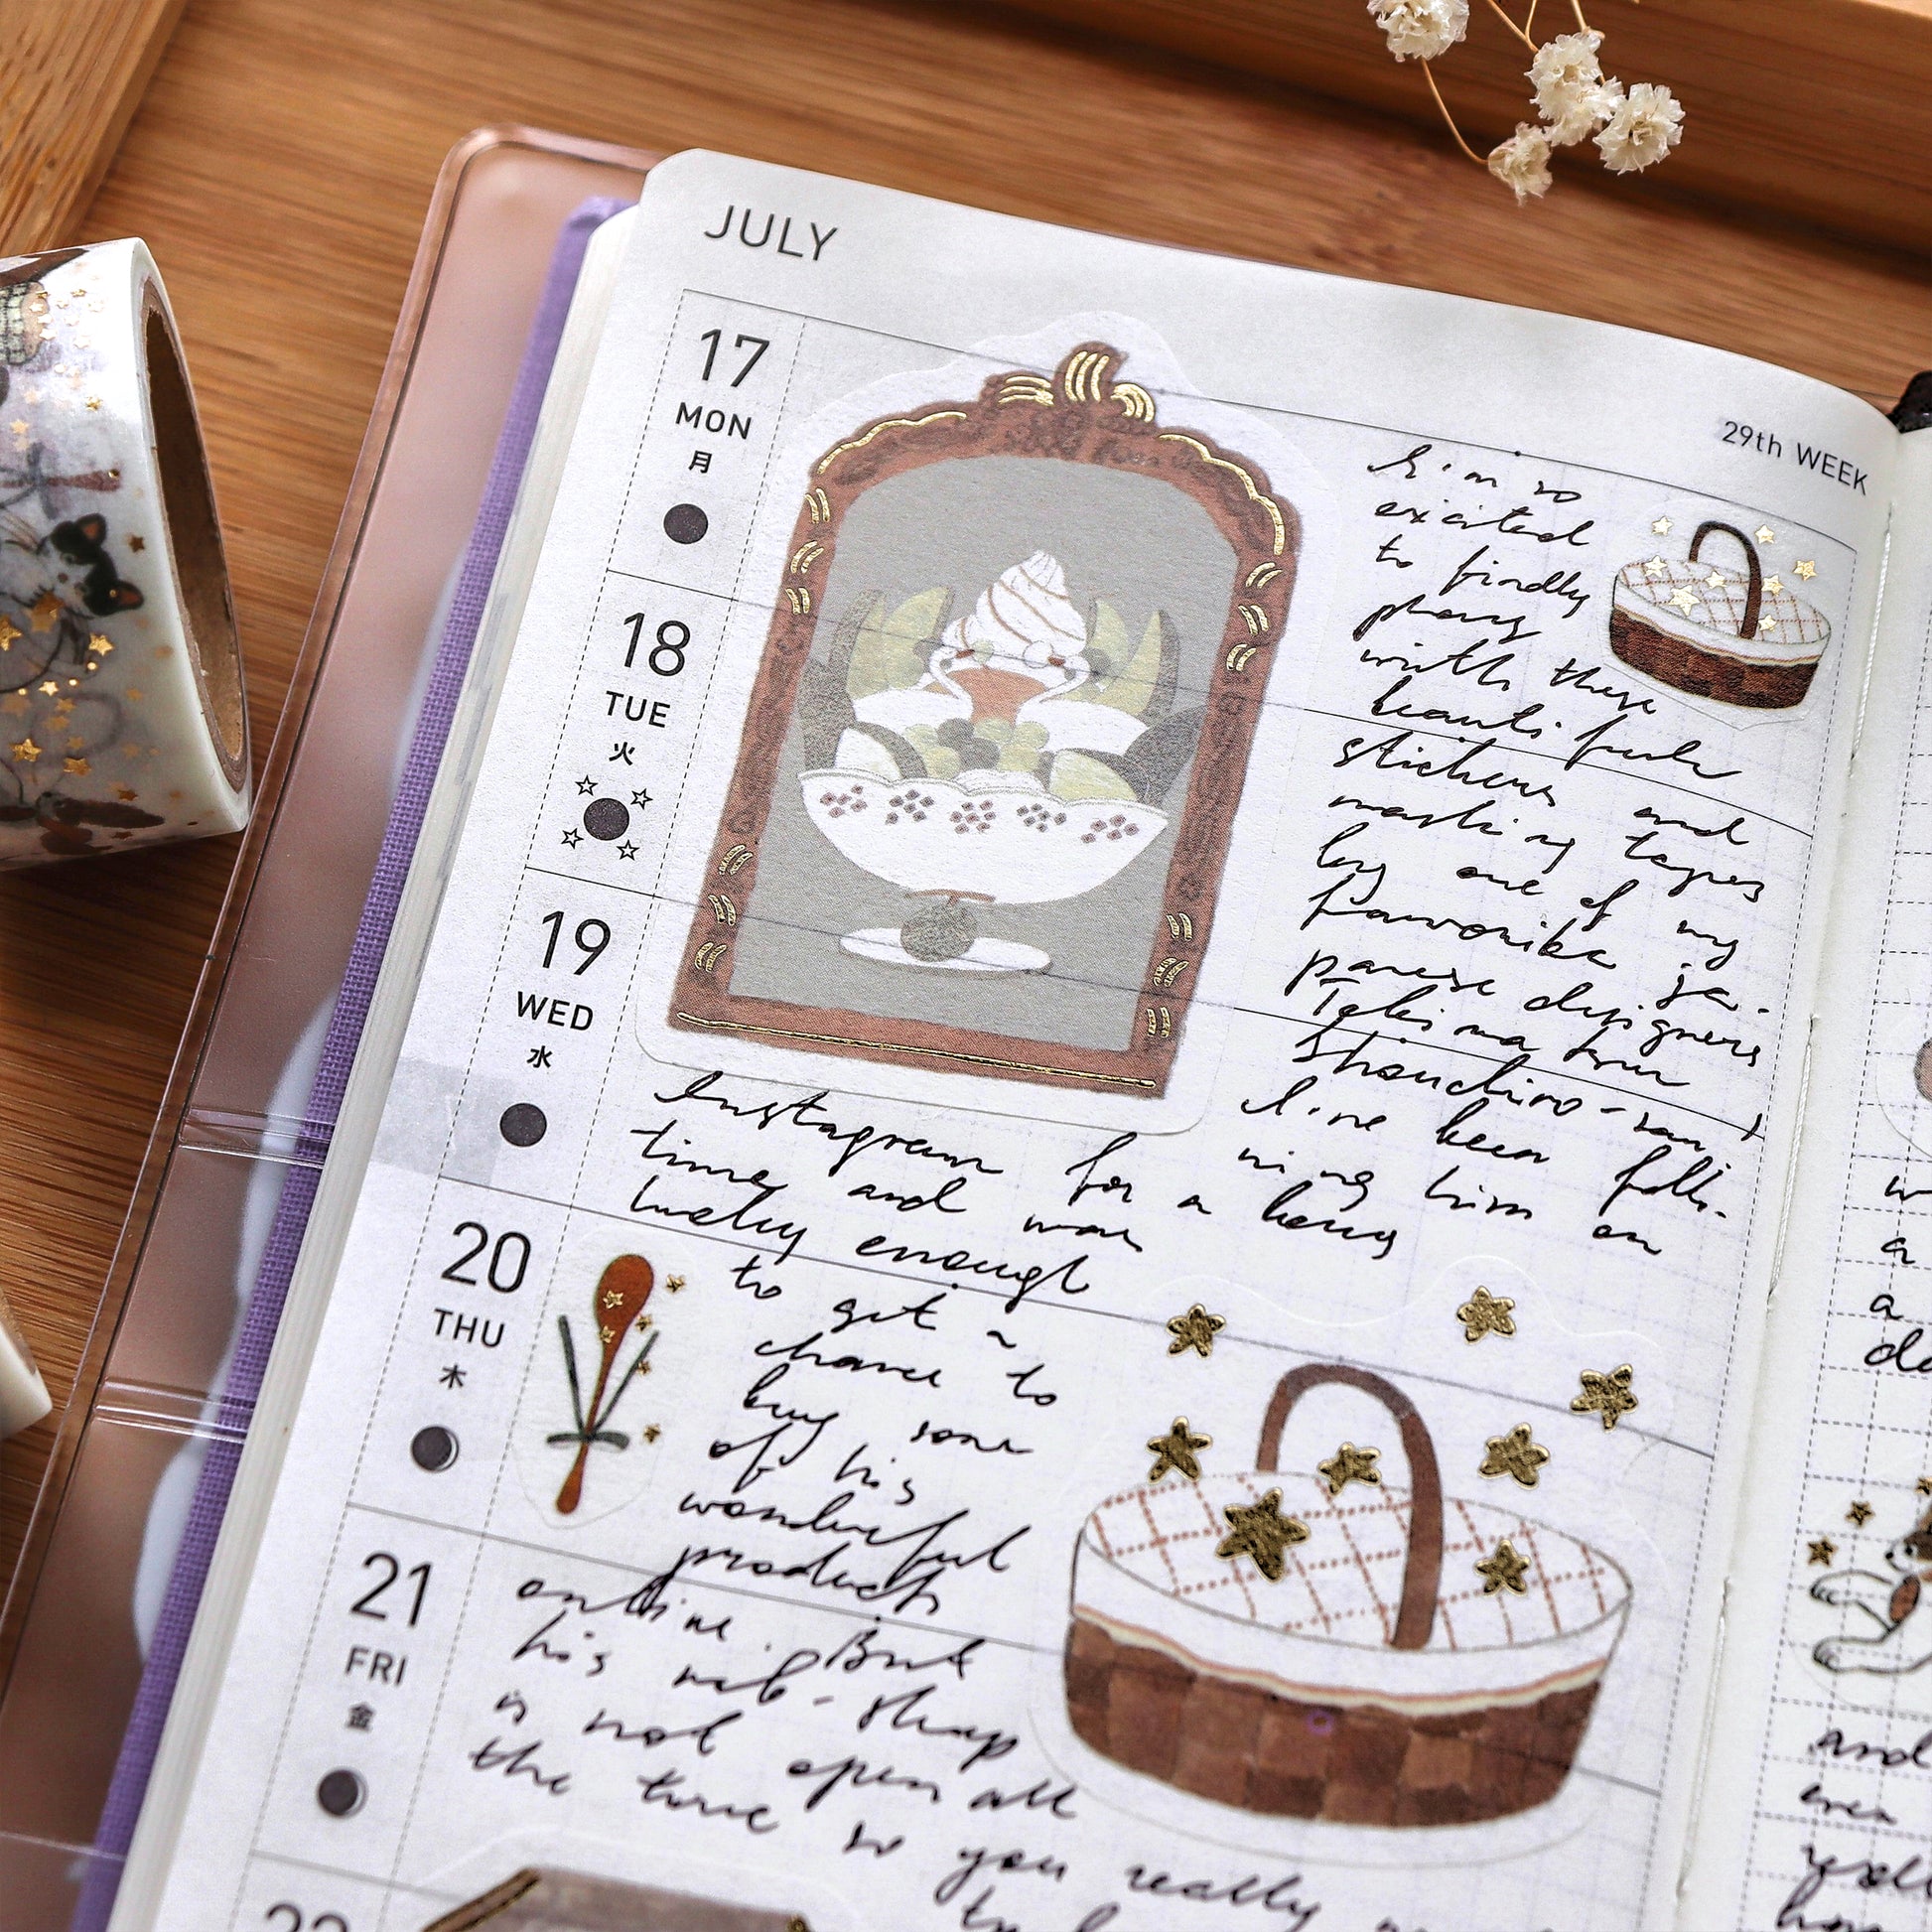 JULY
29th WEEK
17
MON
月
18
TUE
火
19
WED
水
20
THU
木
21
FRI
金
22
I'm so
excited
to findly
play
with these
beautifull
stickers and
masking tapes
by one of my
favorite ja-
panese designers
Shouchiro-san!
I've been follo-
wing him on
Instagram for a long
time and was
lucky enough
to get a
chance to
buy some
of his
wonderful
products
online. But
his web-shop
is not open all
the time so you really
a
a
And
even